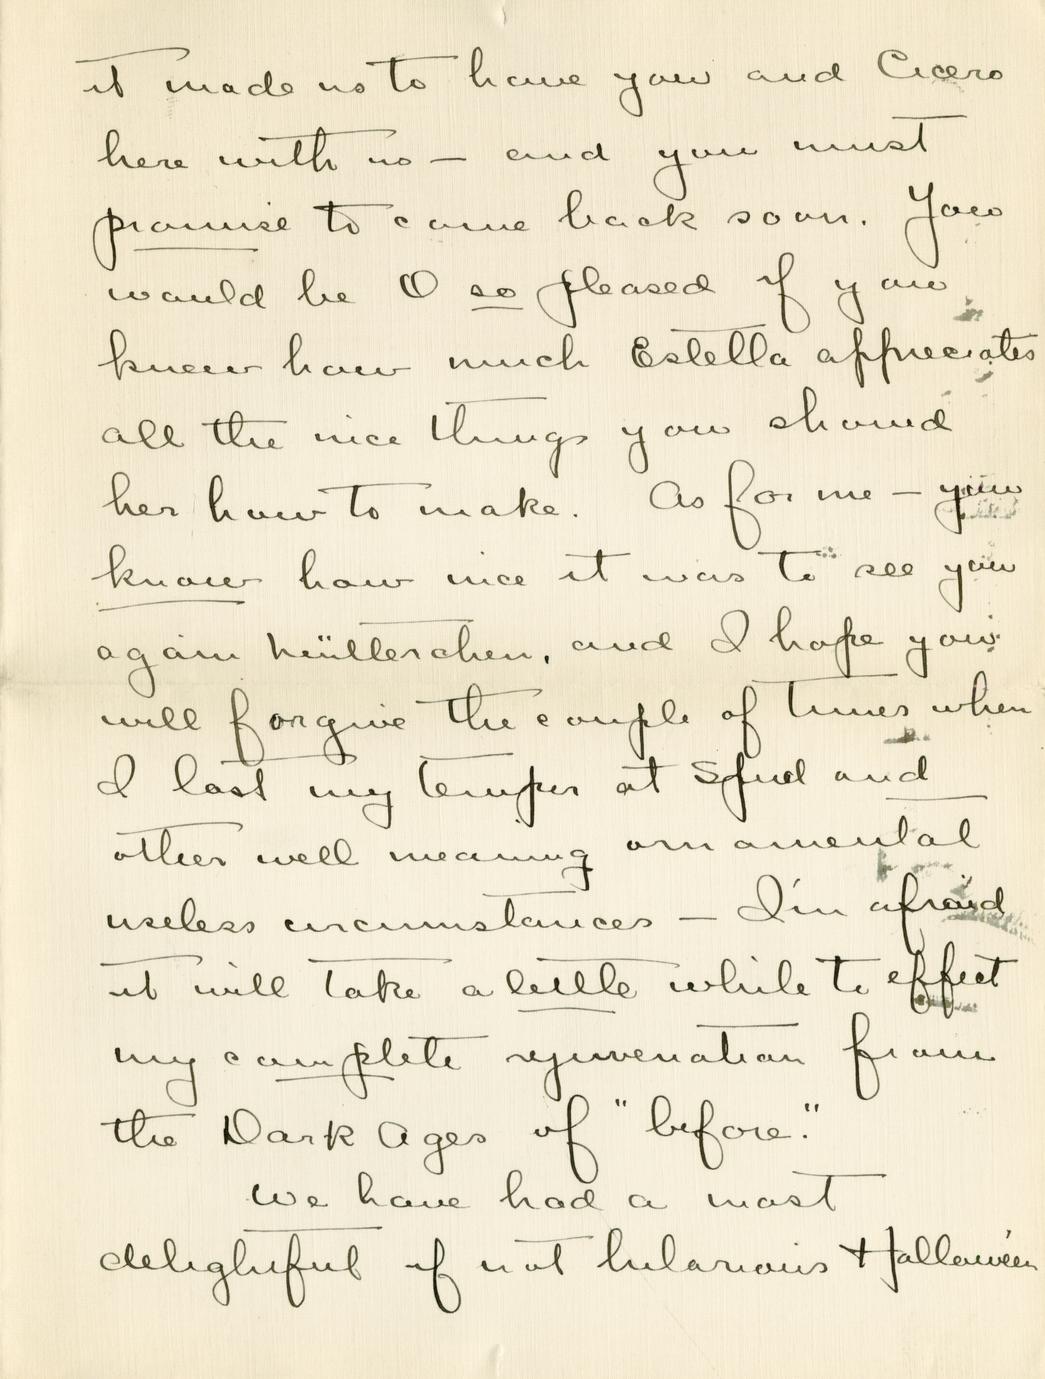 it made us to have you and Cicero
here with us — and you must
promise to come back soon. You
would be O so pleased if you
knew how much Estella appreciates
all the nice things you showed
her how to make. As for me — you
know how nice it was to see you
again Mütterchen, and I hope you
will forgive the couple of times when
I lost my temper at Spud and
other well meaning ornamental
useless circumstances — I'm afraid
it will take a little while to effect
my complete rejuvenation from
the Dark Ages of "before."
We have had a most
delightful if not hilarious Hallowe'en